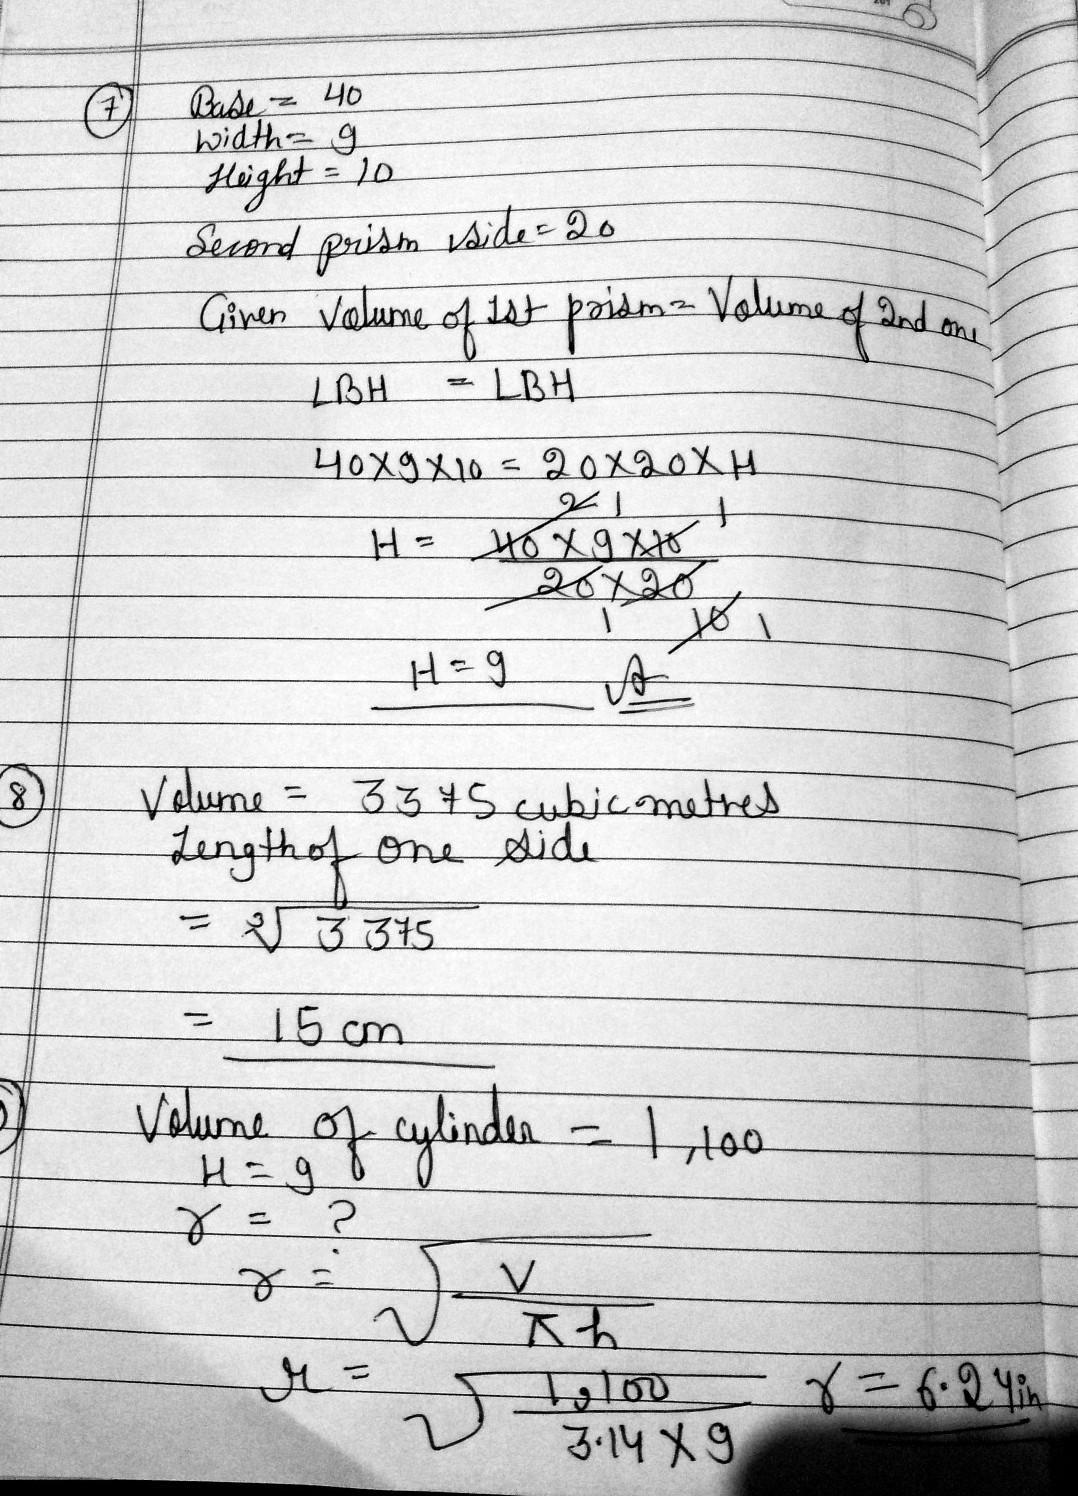 7 Base = 40
Width = 9
Height = 10
Second prism side = 20
Given Volume of 1st prism = Volume of 2nd one
LBH = LBH
40×9×10 = 20×20×H
2 1 1
H = 40×9×10
20×20
1 10 1
H = 9
8 Volume = 3375 cubic metres
Length of one side
= ∛3375
= 15 cm
Volume of cylinder = 1,100
H = 9
r = ?
r = √ V
πh
r = √ 1,100 r = 6.24 in
3.14 × 9